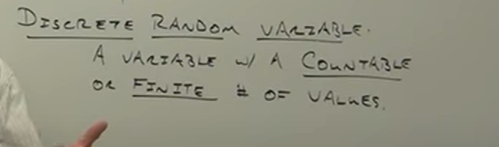 DISCRETE RANDOM VARIABLE.
A VARIABLE W/ A COUNTABLE
OR FINITE # OF VALUES.